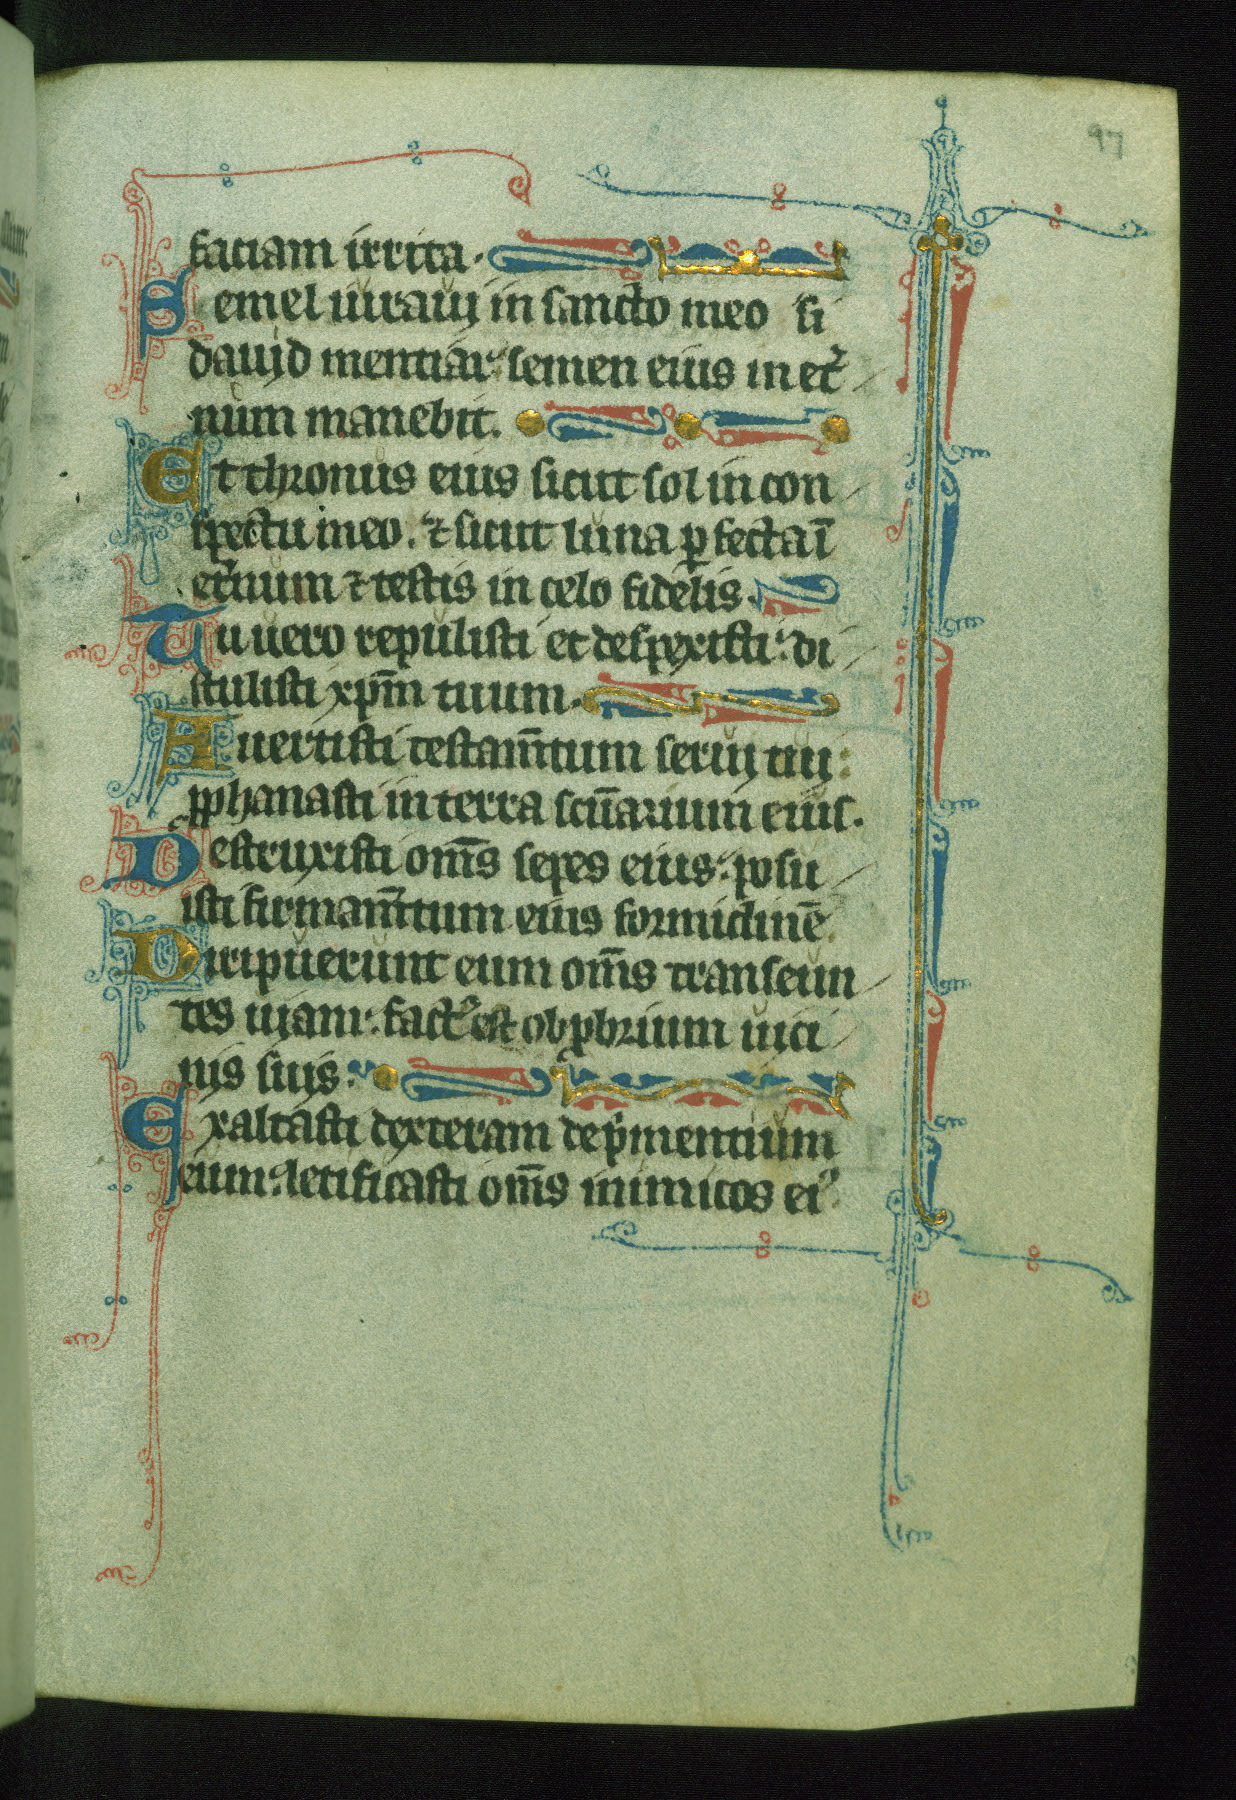 97
faciam irrita.
Semel iuraui in sancto meo si
dauid mentiar: semen eius in et̾
num manebit.
Et thronus eius sicut sol in con
spectu meo. ⁊ sicut luna ꝑfecta ī
et̾num ⁊ testis in celo fidelis.
Tu uero repulisti et despexisti: di
stulisti xp̄m tuum.
Auertisti testam̄tum serui tui:
ꝓphanasti in terra scūarium eius.
Destruxisti om̄s sepes eius: posu
isti firmam̄tum eius formidinē
Diripuerunt eum om̄s transeun
tes uiam: fact᷒ est obꝓbrium uici
nis suis:
Exaltasti dexteram dep̾mentium
eum: letificasti om̄s inimicos ei᷒